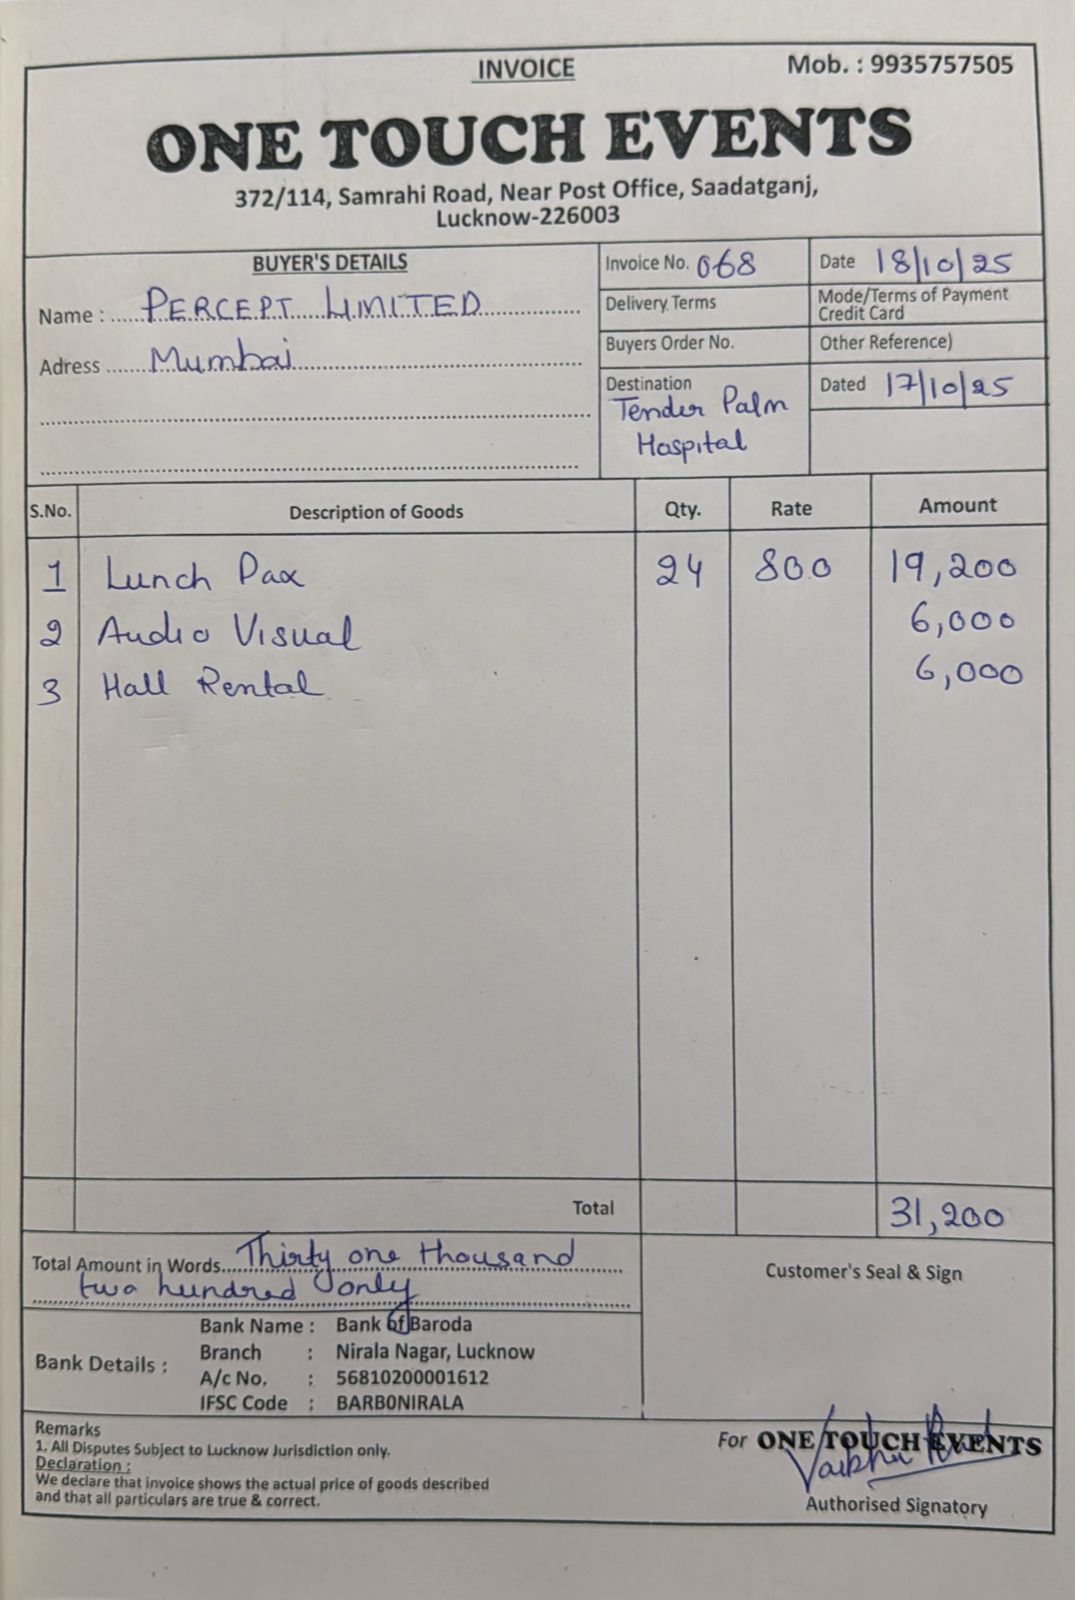 INVOICE
Mob. : 9935757505
ONE TOUCH EVENTS
372/114, Samrahi Road, Near Post Office, Saadatganj,
Lucknow-226003
BUYER'S DETAILS
Name : PERCEPT LIMITED
Adress Mumbai
Invoice No. 068
Date 18/10/25
Delivery Terms
Mode/Terms of Payment
Credit Card
Buyers Order No.
Other Reference)
Destination
Tender Palm
Hospital
Dated 17/10/25
S.No. Description of Goods Qty. Rate Amount
1 Lunch Pax 24 800 19,200
2 Audio Visual 6,000
3 Hall Rental 6,000
Total 31,200
Total Amount in Words Thirty one thousand
two hundred only
Customer's Seal & Sign
Bank Details :
Bank Name : Bank of Baroda
Branch : Nirala Nagar, Lucknow
A/c No. : 56810200001612
IFSC Code : BARB0NIRALA
Remarks
1. All Disputes Subject to Lucknow Jurisdiction only.
Declaration :
We declare that invoice shows the actual price of goods described
and that all particulars are true & correct.
For ONE TOUCH EVENTS
Authorised Signatory